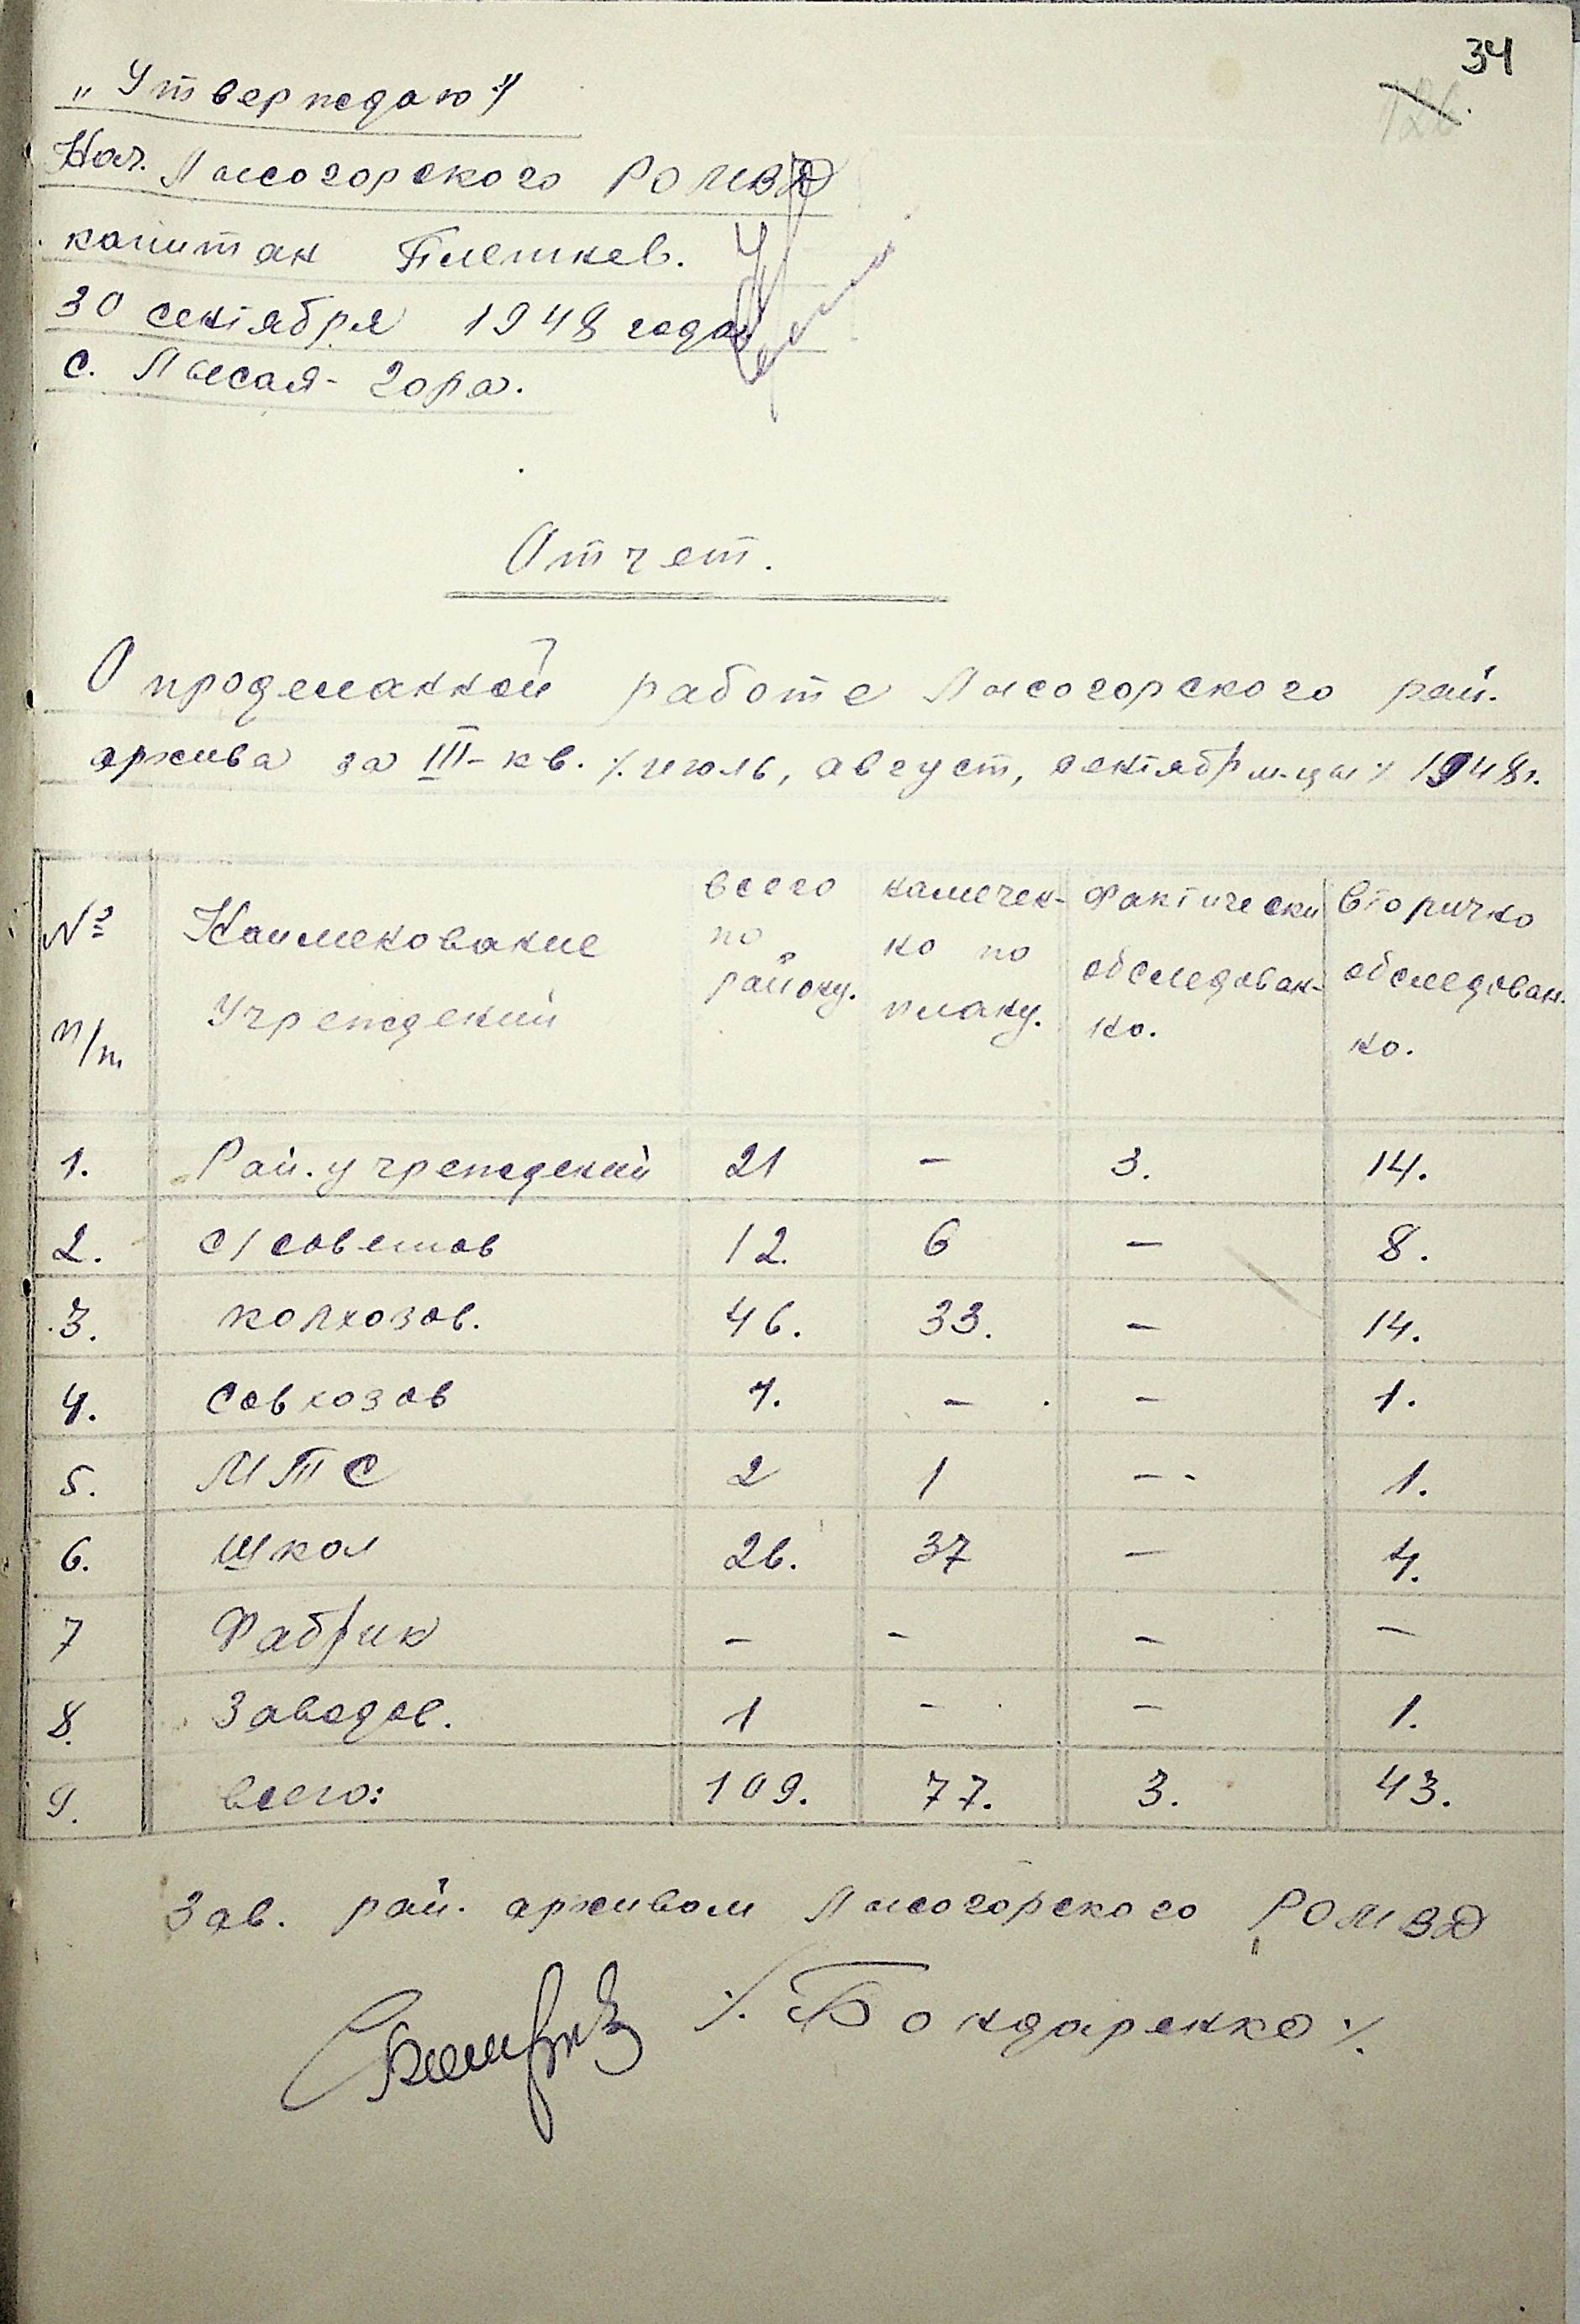 34
126.
„Утверждаю"
Нач. Лысогорского РОМВД
капитан Плешнев.
30 сентября 1948 года
с. Лысая-гора.
Отчет.
О проделанной работе Лысогорского рай.
архива за III-кв. ·/. июль, август, сентябр м-цы ·/. 1948г.
№ п/п Наименование Учреждений всего по району. намечен-но по плану. Фактически обследован-но. Вторично обследован-но.
1. Рай. учреждений 21 – 3. 14.
2. с/советов 12. 6 – 8.
3. колхозов. 46. 33. – 14.
4. Совхозов 1. – – 1.
5. МТС 2 1 – 1.
6. школ 26. 37 – 4.
7 Фабрик – – – –
8. Заводов. 1 – – 1.
9. всего: 109. 77. 3. 43.
Зав. рай. архивом Лысогорского РОМВД
·/. Бондаренко ·/.